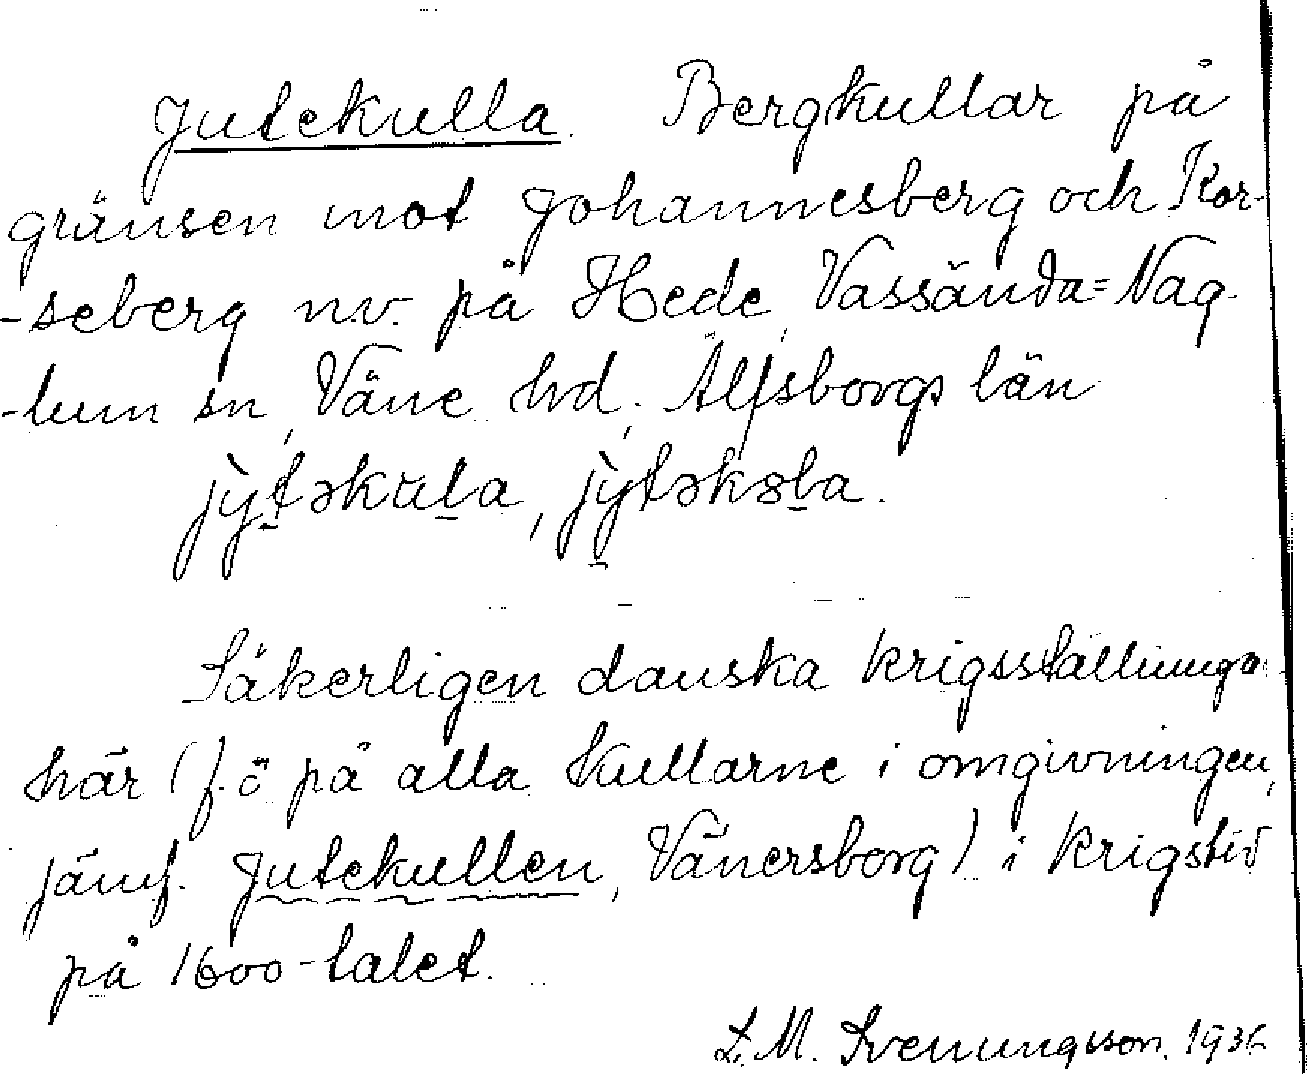 Jutekulla. Bergkullar på
gränsen mot Johannesberg och Kor-
-seberg n.v. på Hede, Vassända=Nag-
-lum sn, Väne hd, Älfsborgs län
Säkerligen danska krigsställningar
här (f. ö på alla kullarne i omgivningen,
jämf. Jutekullen, Vänersborg) i krigstid
på 1600-talet.
L. M. Svenungsson. 1936